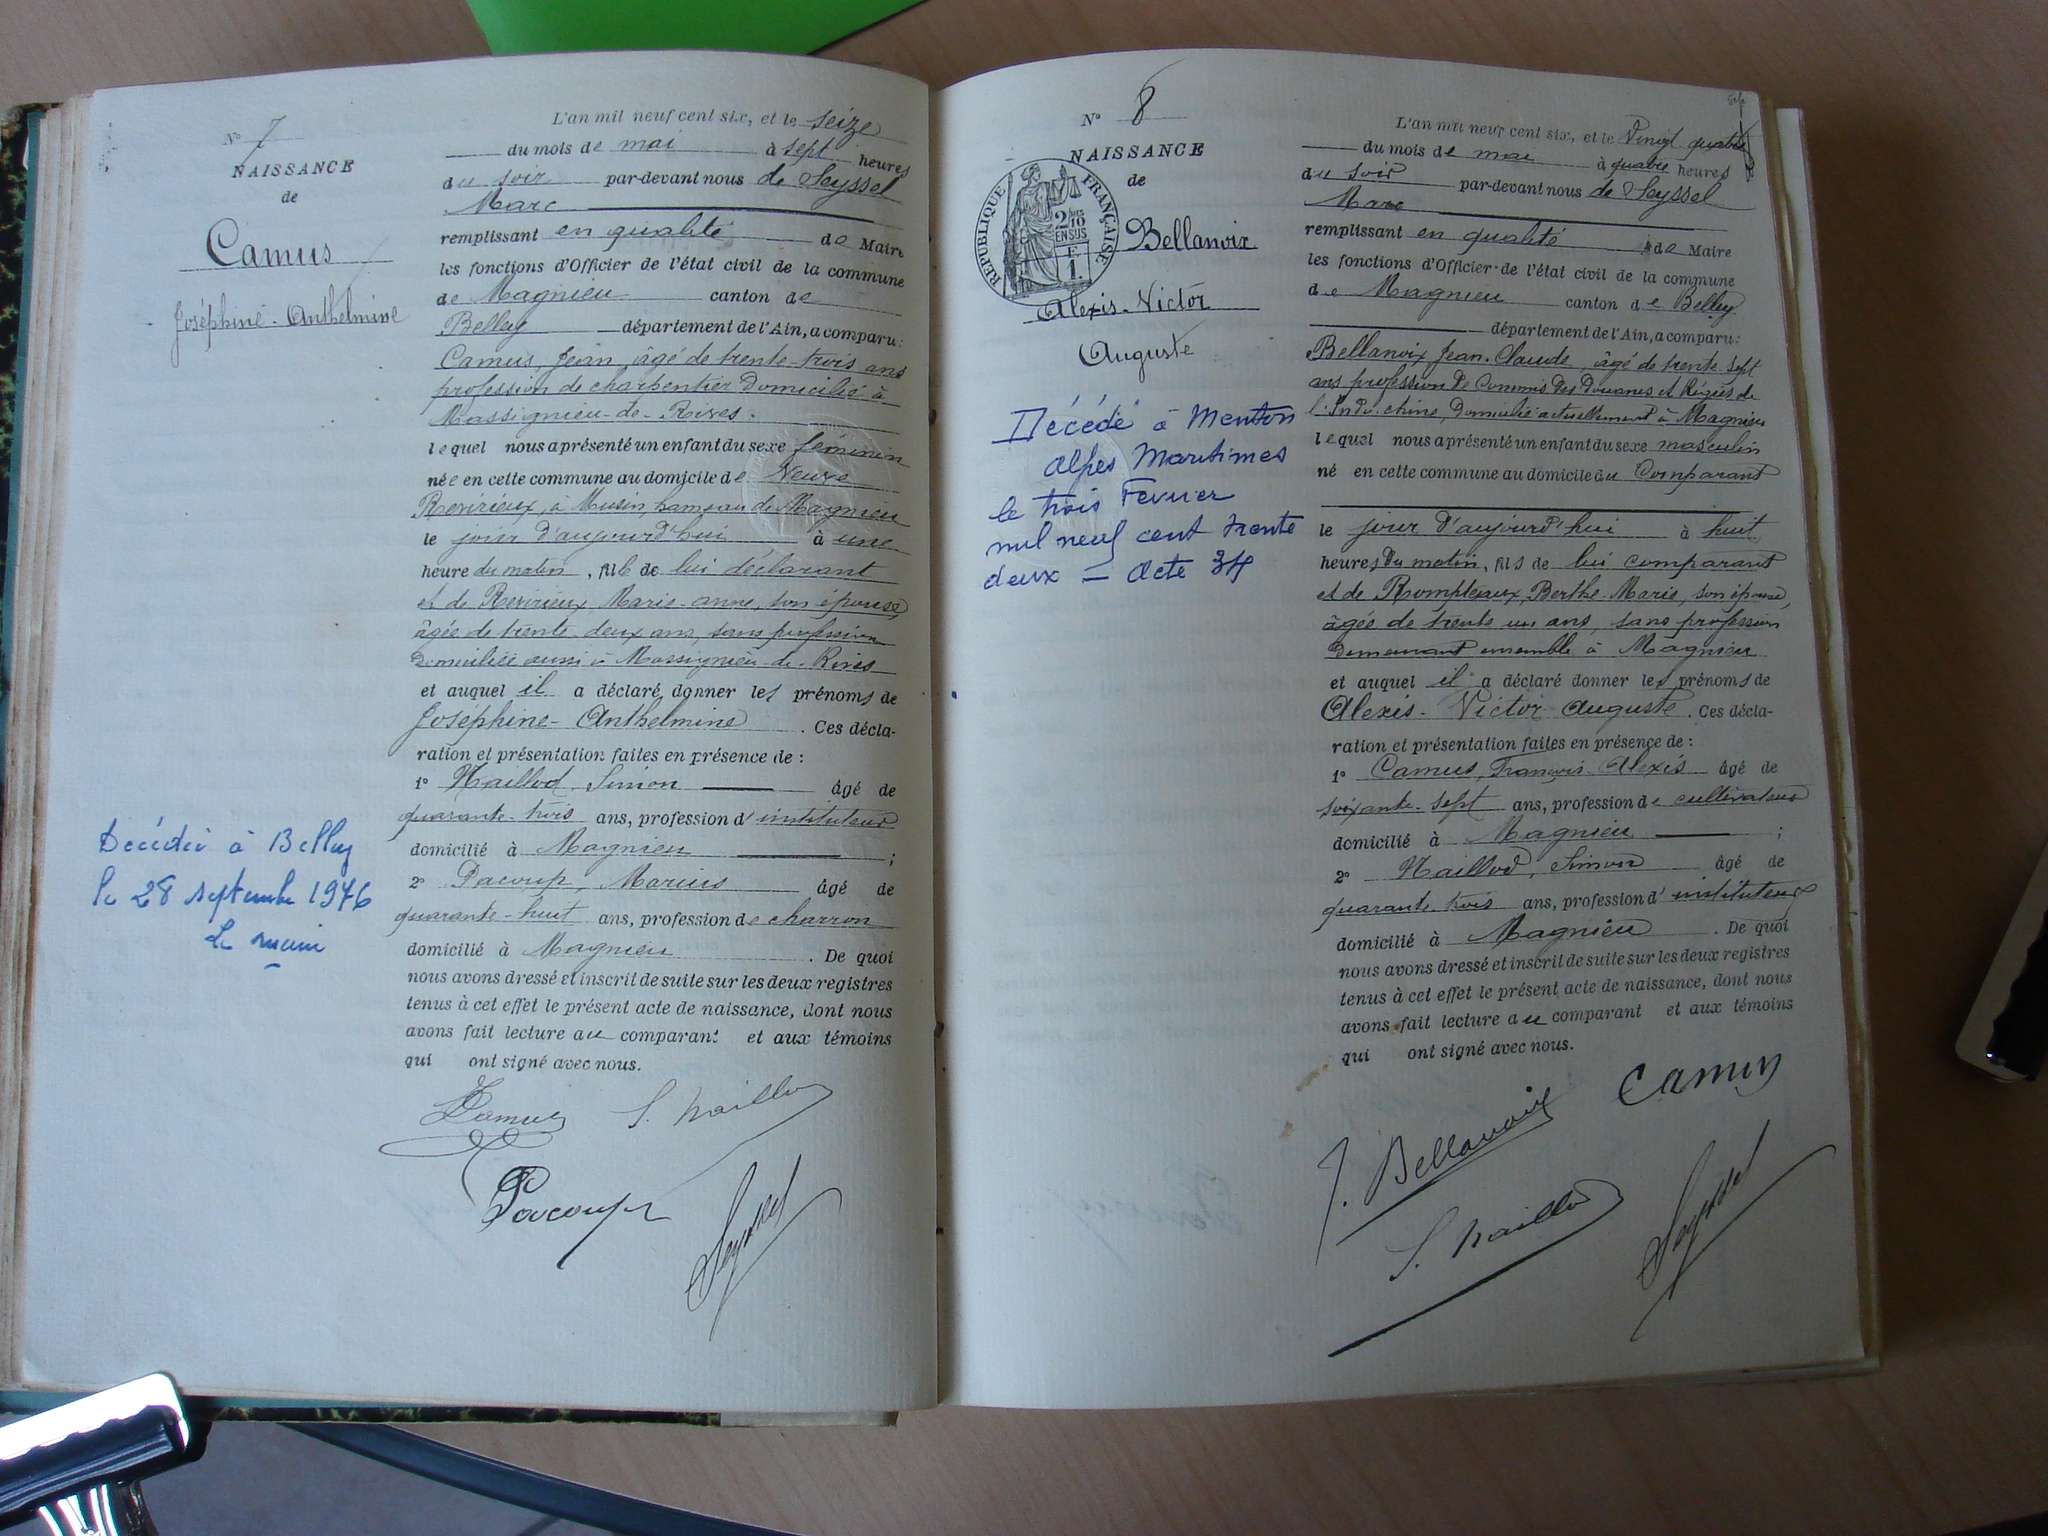 N° 7
NAISSANCE
de
Camus
Joséphine-Anthelmine
Décédée à Belley
le 28 septembre 1976
Le maire
L'an mil neuf cent six, et le seize
du mois de mai à sept heures
du soir par-devant nous de Seyssel
Marc
remplissant en qualité de Maire
les fonctions d'Officier de l'état civil de la commune
de Magnieu canton de
Belley département de l'Ain, a comparu:
Camus, Jean, âgé de trente-trois ans
profession de charpentier domicilié à
Massignieu-de-Rives.
lequel nous a présenté un enfant du sexe féminin
née en cette commune au domicile de Veuve
Revirieux, à Musin, hameau de Magnieu
le jour d'aujourd'hui à une
heure du matin, fille de lui déclarant
et de Revirieux Marie-anne, son épouse,
âgée de trente-deux ans, sans profession
domiciliée aussi à Massignieu-de-Rives
et auquel il a déclaré donner les prénoms de
Joséphine-Anthelmine. Ces décla-
ration et présentation faites en présence de:
1° Naillod, Simon âgé de
quarante-trois ans, profession d'instituteur
domicilié à Magnieu ;
2° Pacoup, Marius âgé de
quarante-huit ans, profession de charron
domicilié à Magnieu. De quoi
nous avons dressé et inscrit de suite sur les deux registres
tenus à cet effet le présent acte de naissance, dont nous
avons fait lecture au comparant et aux témoins
qui ont signé avec nous.
Camus S. Naillod
Pacoup Seyssel
N° 8
NAISSANCE
de
RÉPUBLIQUE FRANÇAISE
2/10 EN SUS
F 1.
Bellanoix
Alexis-Victor
Auguste
Décédé à Menton
Alpes Maritimes
le trois Fevrier
mil neuf cent trente
deux - acte 34
L'an mil neuf cent six, et le Vingt quatre
du mois de mai à quatre heures
du soir par-devant nous de Seyssel
Marc
remplissant en qualité de Maire
les fonctions d'Officier de l'état civil de la commune
de Magnieu canton de Belley
département de l'Ain, a comparu:
Bellanoix Jean-Claude, âgé de trente sept
ans profession de Commis des Douanes et Régies de
l'Indo-chine, domicilié actuellement à Magnieu
lequel nous a présenté un enfant du sexe masculin
né en cette commune au domicile du Comparant
le jour d'aujourd'hui à huit
heures du matin, fils de lui comparant
et de Rompteaux, Berthe-Marie, son épouse,
âgée de trente un ans, sans profession
demeurant ensemble à Magnieu
et auquel il a déclaré donner les prénoms de
Alexis-Victor Auguste. Ces décla-
ration et présentation faites en présence de:
1° Camus, François-Alexis âgé de
soixante-sept ans, profession de cultivateur
domicilié à Magnieu ;
2° Naillod, Simon âgé de
quarante-trois ans, profession d'instituteur
domicilié à Magnieu. De quoi
nous avons dressé et inscrit de suite sur les deux registres
tenus à cet effet le présent acte de naissance, dont nous
avons fait lecture au comparant et aux témoins
qui ont signé avec nous.
J. Bellanoix Camus
S. Naillod Seyssel